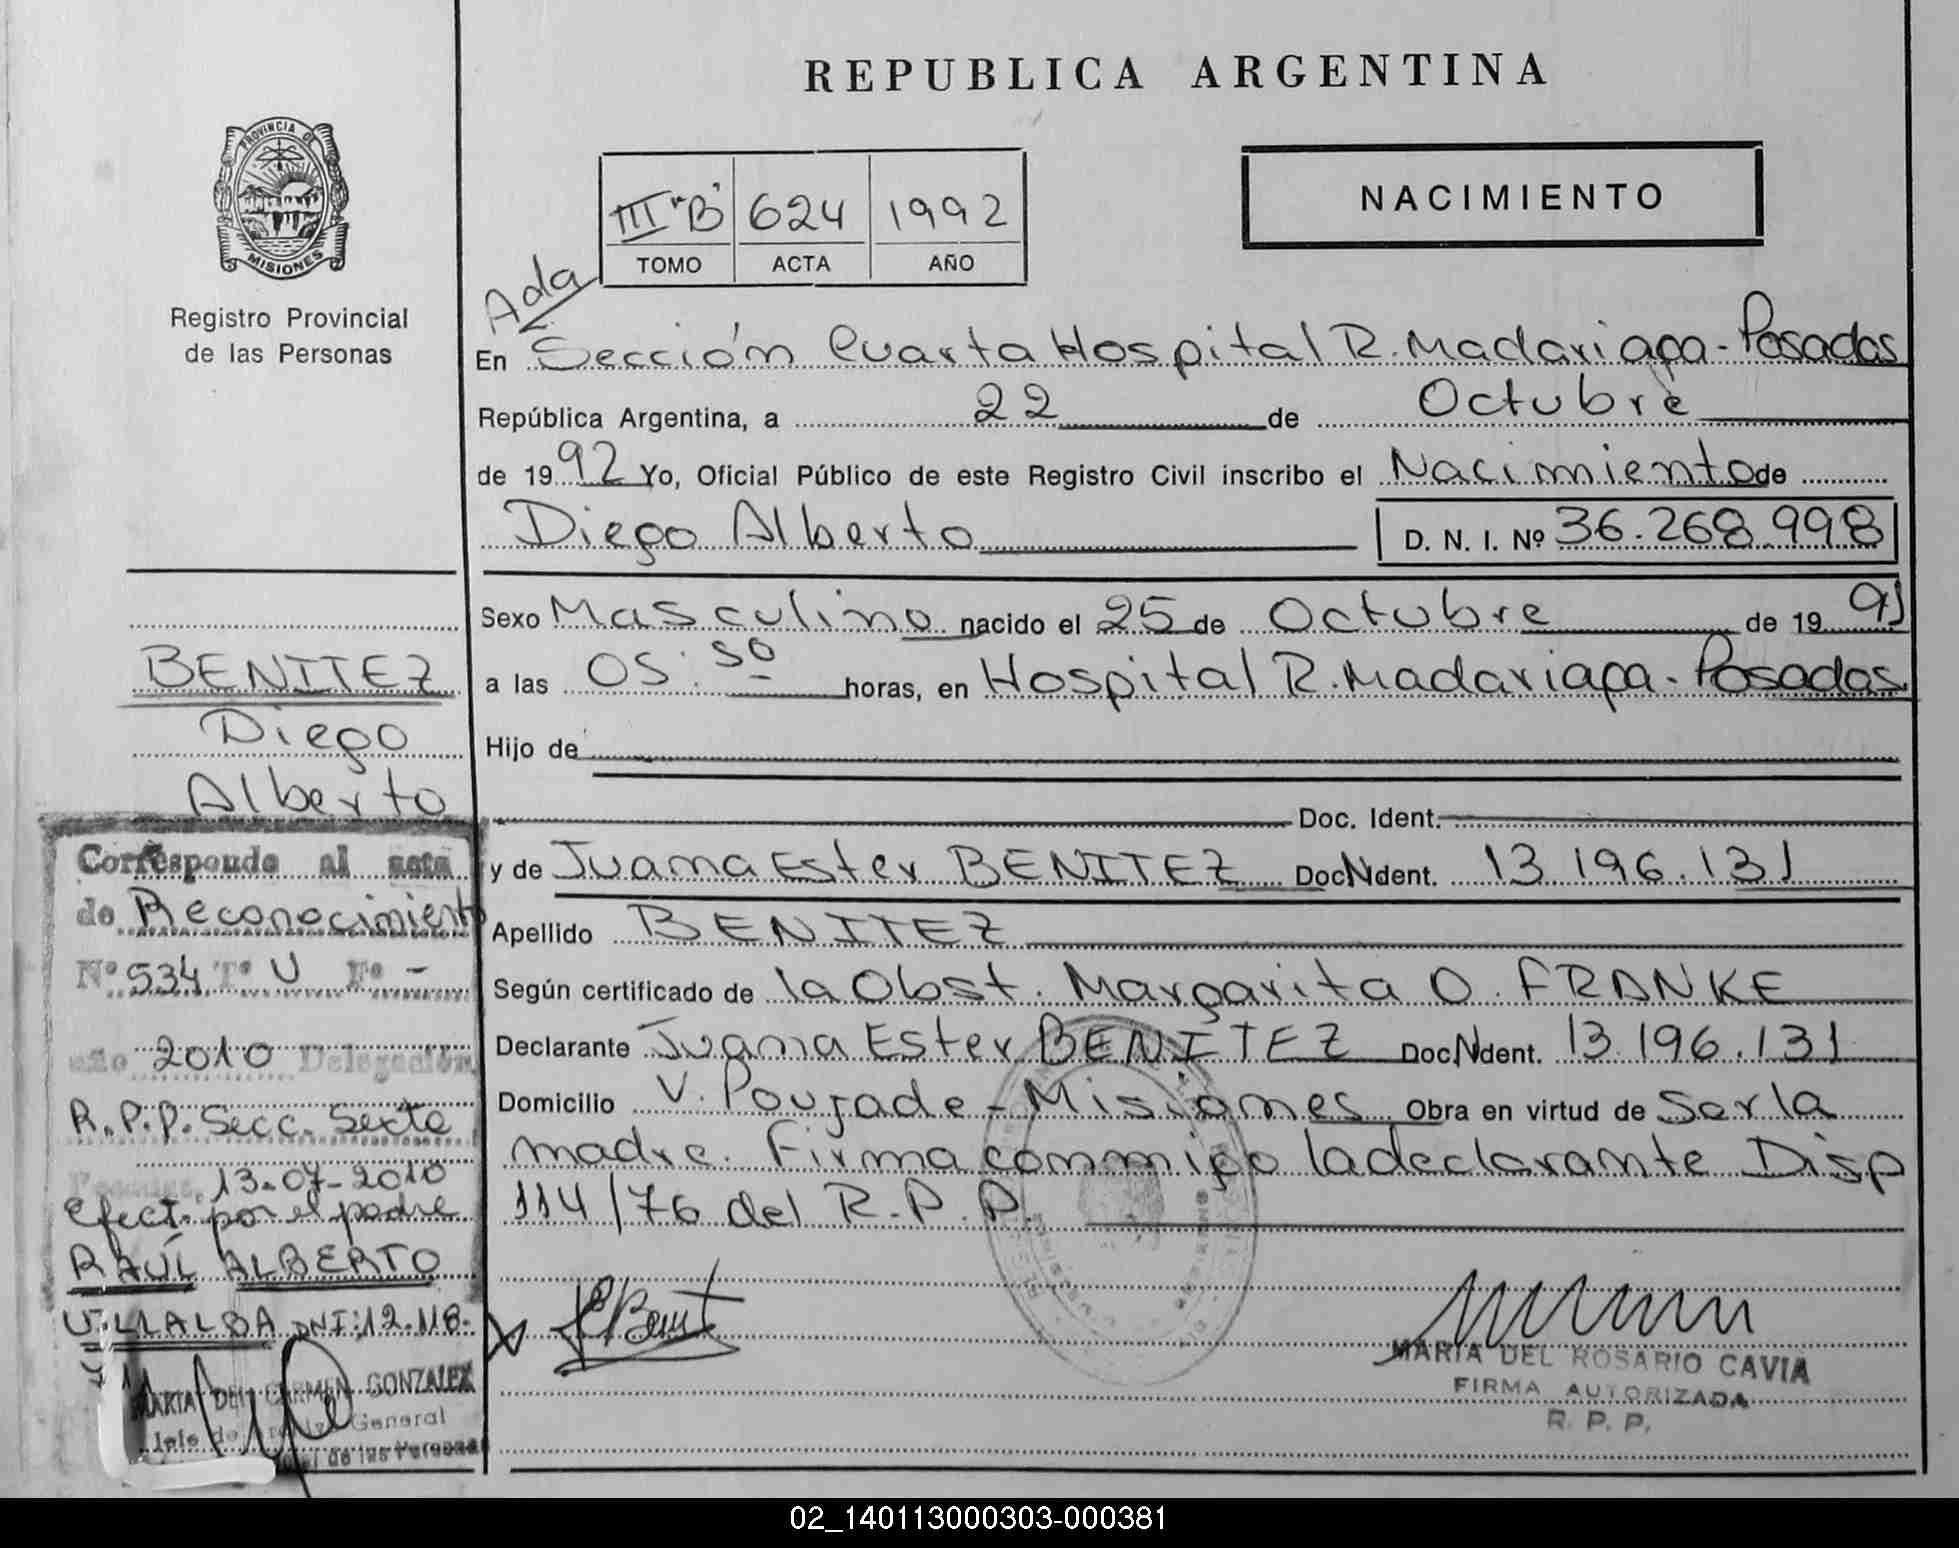 REPUBLICA ARGENTINA
PROVINCIA DE
MISIONES
Registro Provincial
de las Personas
III "B" 624 1992
TOMO ACTA AÑO
NACIMIENTO
Ada
En Sección Cuarta Hospital R. Madariaga - Posadas
República Argentina, a 22 de Octubre
de 1992 Yo, Oficial Público de este Registro Civil inscribo el Nacimiento de
Diego Alberto D. N. I. Nº 36.268.998
Sexo Masculino nacido el 25 de Octubre de 1991
a las 05:50 horas, en Hospital R. Madariaga - Posadas
Hijo de
Doc. Ident.
y de Juana Ester BENITEZ Doc Ident. 13.196.131
Apellido BENITEZ
Según certificado de la Obst. Margarita O. FRANKE
Declarante Juana Ester BENITEZ Doc Ident. 13.196.131
Domicilio V. Poujade - Misiones Obra en virtud de Ser la
madre. Firma conmigo la declarante Disp
114/76 del R. P. P.
MARIA DEL ROSARIO CAVIA
FIRMA AUTORIZADA
R. P. P.
BENITEZ
Diego
Alberto
Corresponde al acta
de Reconocimiento
Nº 534 Tº V Fº -
año 2010 Delegación
R.P.P. Secc. Sexta
13-07-2010
Efect. por el padre
RAÚL ALBERTO
VILLALBA DNI: 12.118.
MARIA DEL CARMEN GONZALEZ
General
de las Personas
02_140113000303-000381